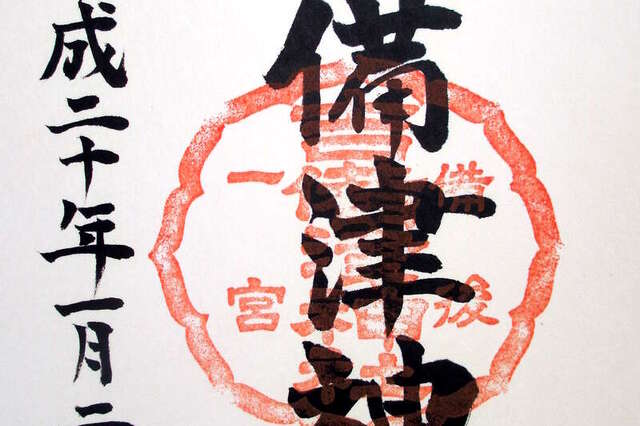 備津神
備後
一宮
成二十年一月二